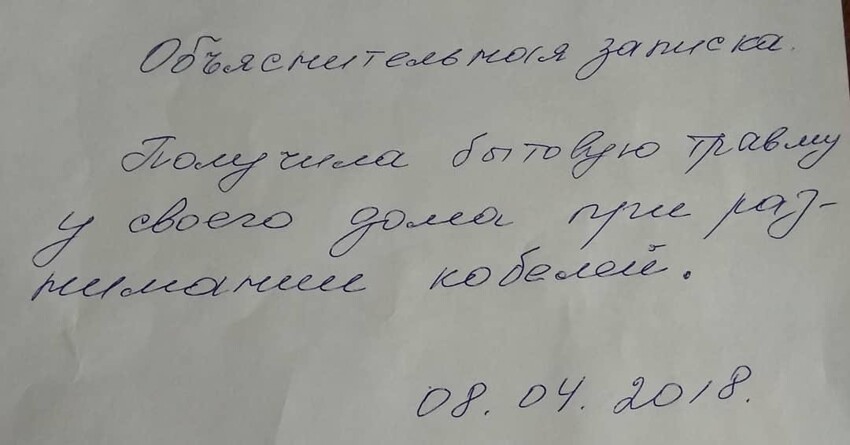 Объяснительная записка.
Получила бытовую травму
у своего дома при раз-
нимании кобелей.
08.04.2018.